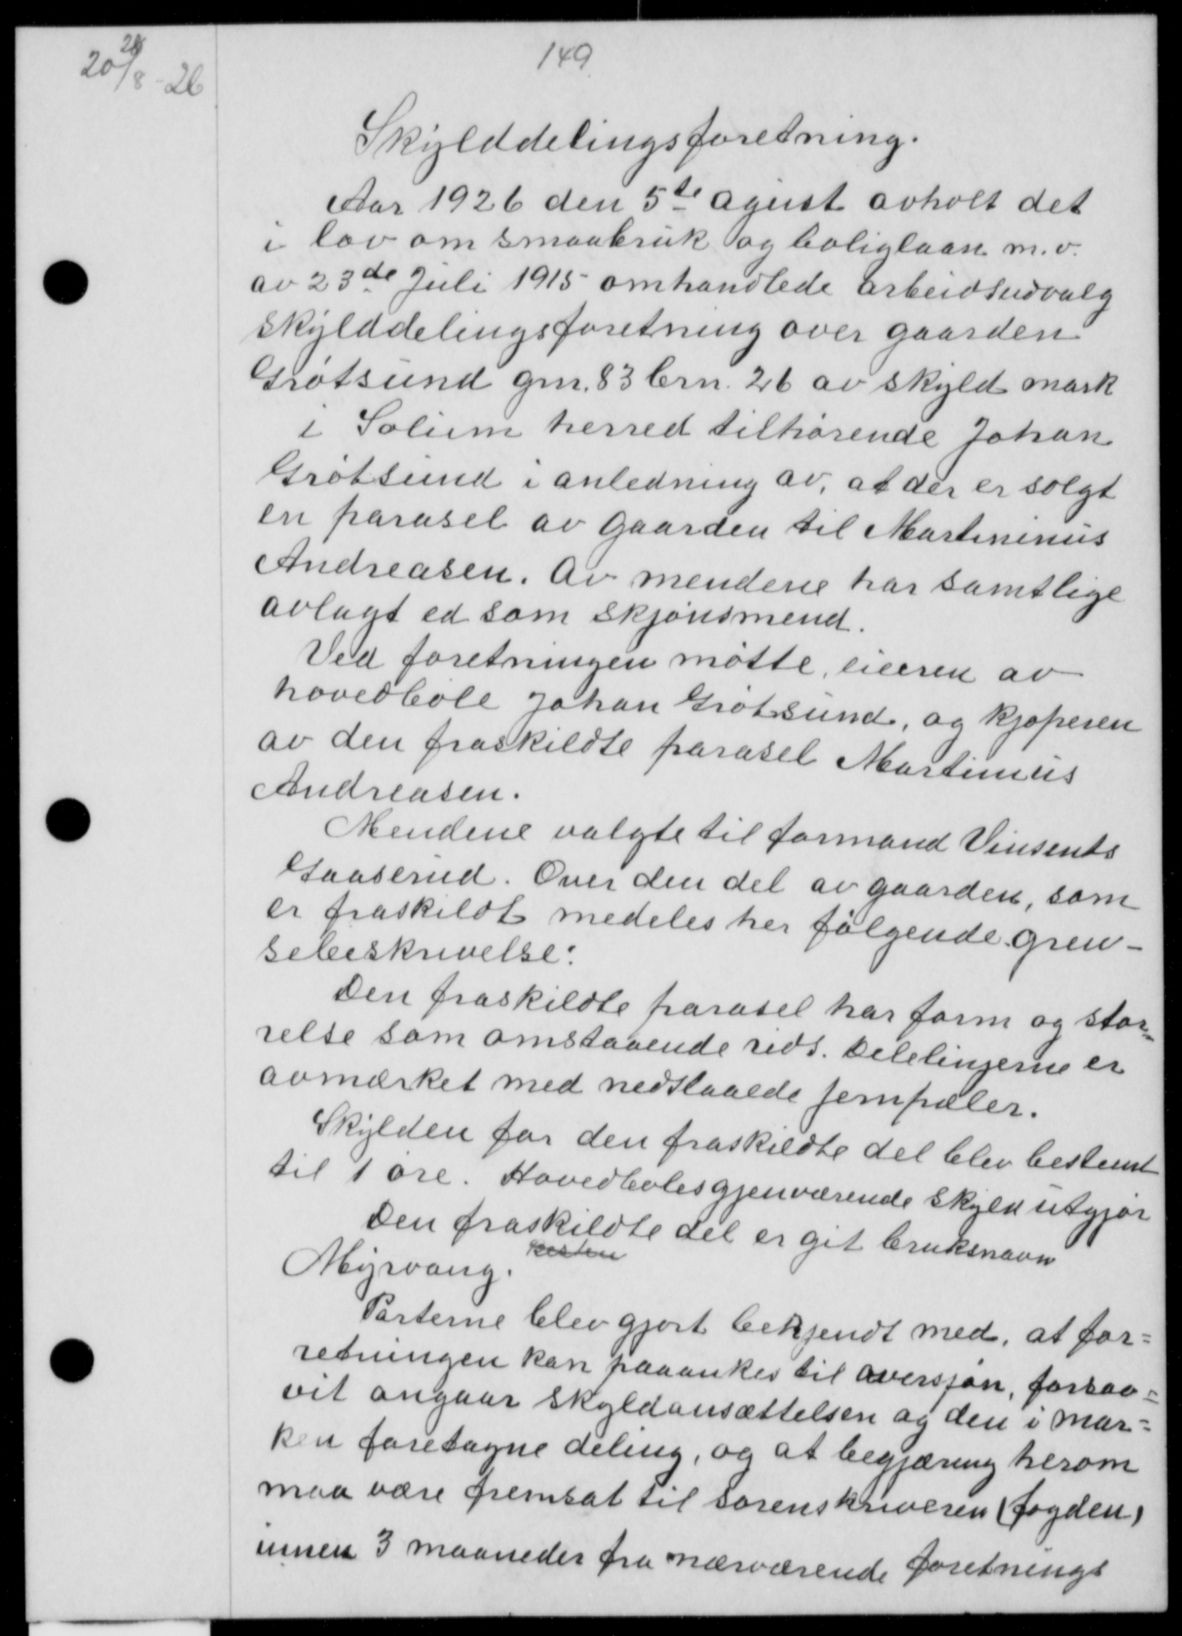 149
20 28/8-26
Skylddelingsforetning.
Aar 1926 den 5te agust avholt det
i lov om smaabruk og boliglaan m.v.
av 23de Juli 1915 omhandlede arbeidsudvalg
skylddelingsforetning over gaarden
Grøtsund gnr. 83 brn. 26 av skyld mark
i Solum herred tilhørende Johan
Grøtsund i anledning av, at der er solgt
en parasel av gaarden til Martininus
Andreasen. Av mendene har samtlige
avlagt ed som skjønsmend.
Ved foretningen møtte, eieren av
hovedbøle Johan Grøtsund, og kjøperen
av den fraskildte parasel Martinius
Andreasen.
Mendene valgte til formand Vinsents
Gaaserud. Over den del av gaarden, som
er fraskildt medeles her følgende gren-
sebeskrivelse:
Den fraskildte parasel har form og stør-
relse som omstaaende rids. Delelinjerne er
avmærket med nedslaaede jernpæler.
Skylden for den fraskildte del blev bestemt
til 1 øre. Hovedbølesgjenværende skyld utgjør
Den fraskildte del er git bruksnavn
Myrvang.
Parterne blev gjort bekjendt med, at for=
retningen kan paaankes til overskjøn, forsaa=
vit angaar skyldansættelsen og den i mar=
ken foretagne deling, og at begjæring herom
maa være fremsat til sorenskriveren (fogden)
innen 3 maaneder fra nærværende foretnings